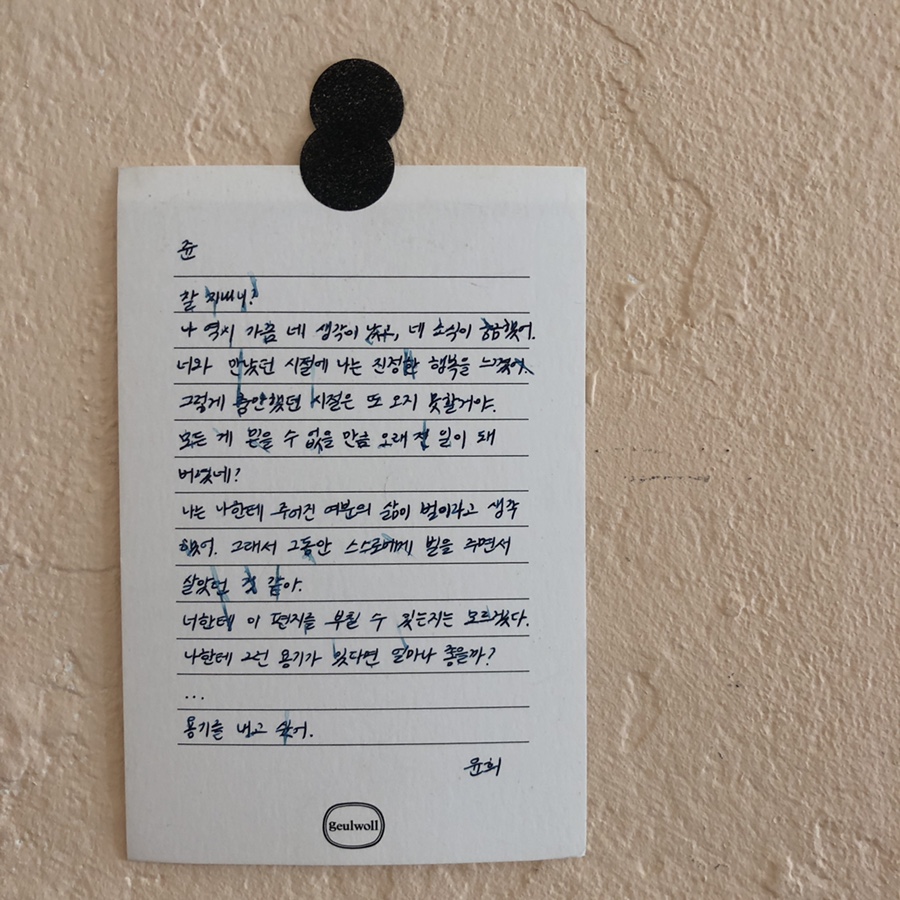 쥰
잘 지내니?
나 역시 가끔 네 생각이 났고, 네 소식이 궁금했어.
너와 만났던 시절에 나는 진정한 행복을 느꼈어.
그렇게 충만했던 시절은 또 오지 못할거야.
모든 게 믿을 수 없을 만큼 오래 전 일이 돼
버렸네?
나는 나한테 주어진 여분의 삶이 벌이라고 생각
했어. 그래서 그동안 스스로에게 벌을 주면서
살았던 것 같아.
너한테 이 편지를 부칠 수 있는지는 모르겠다.
나한테 그런 용기가 있다면 얼마나 좋을까?
...
용기를 내고 싶어.
윤희
geulwoll